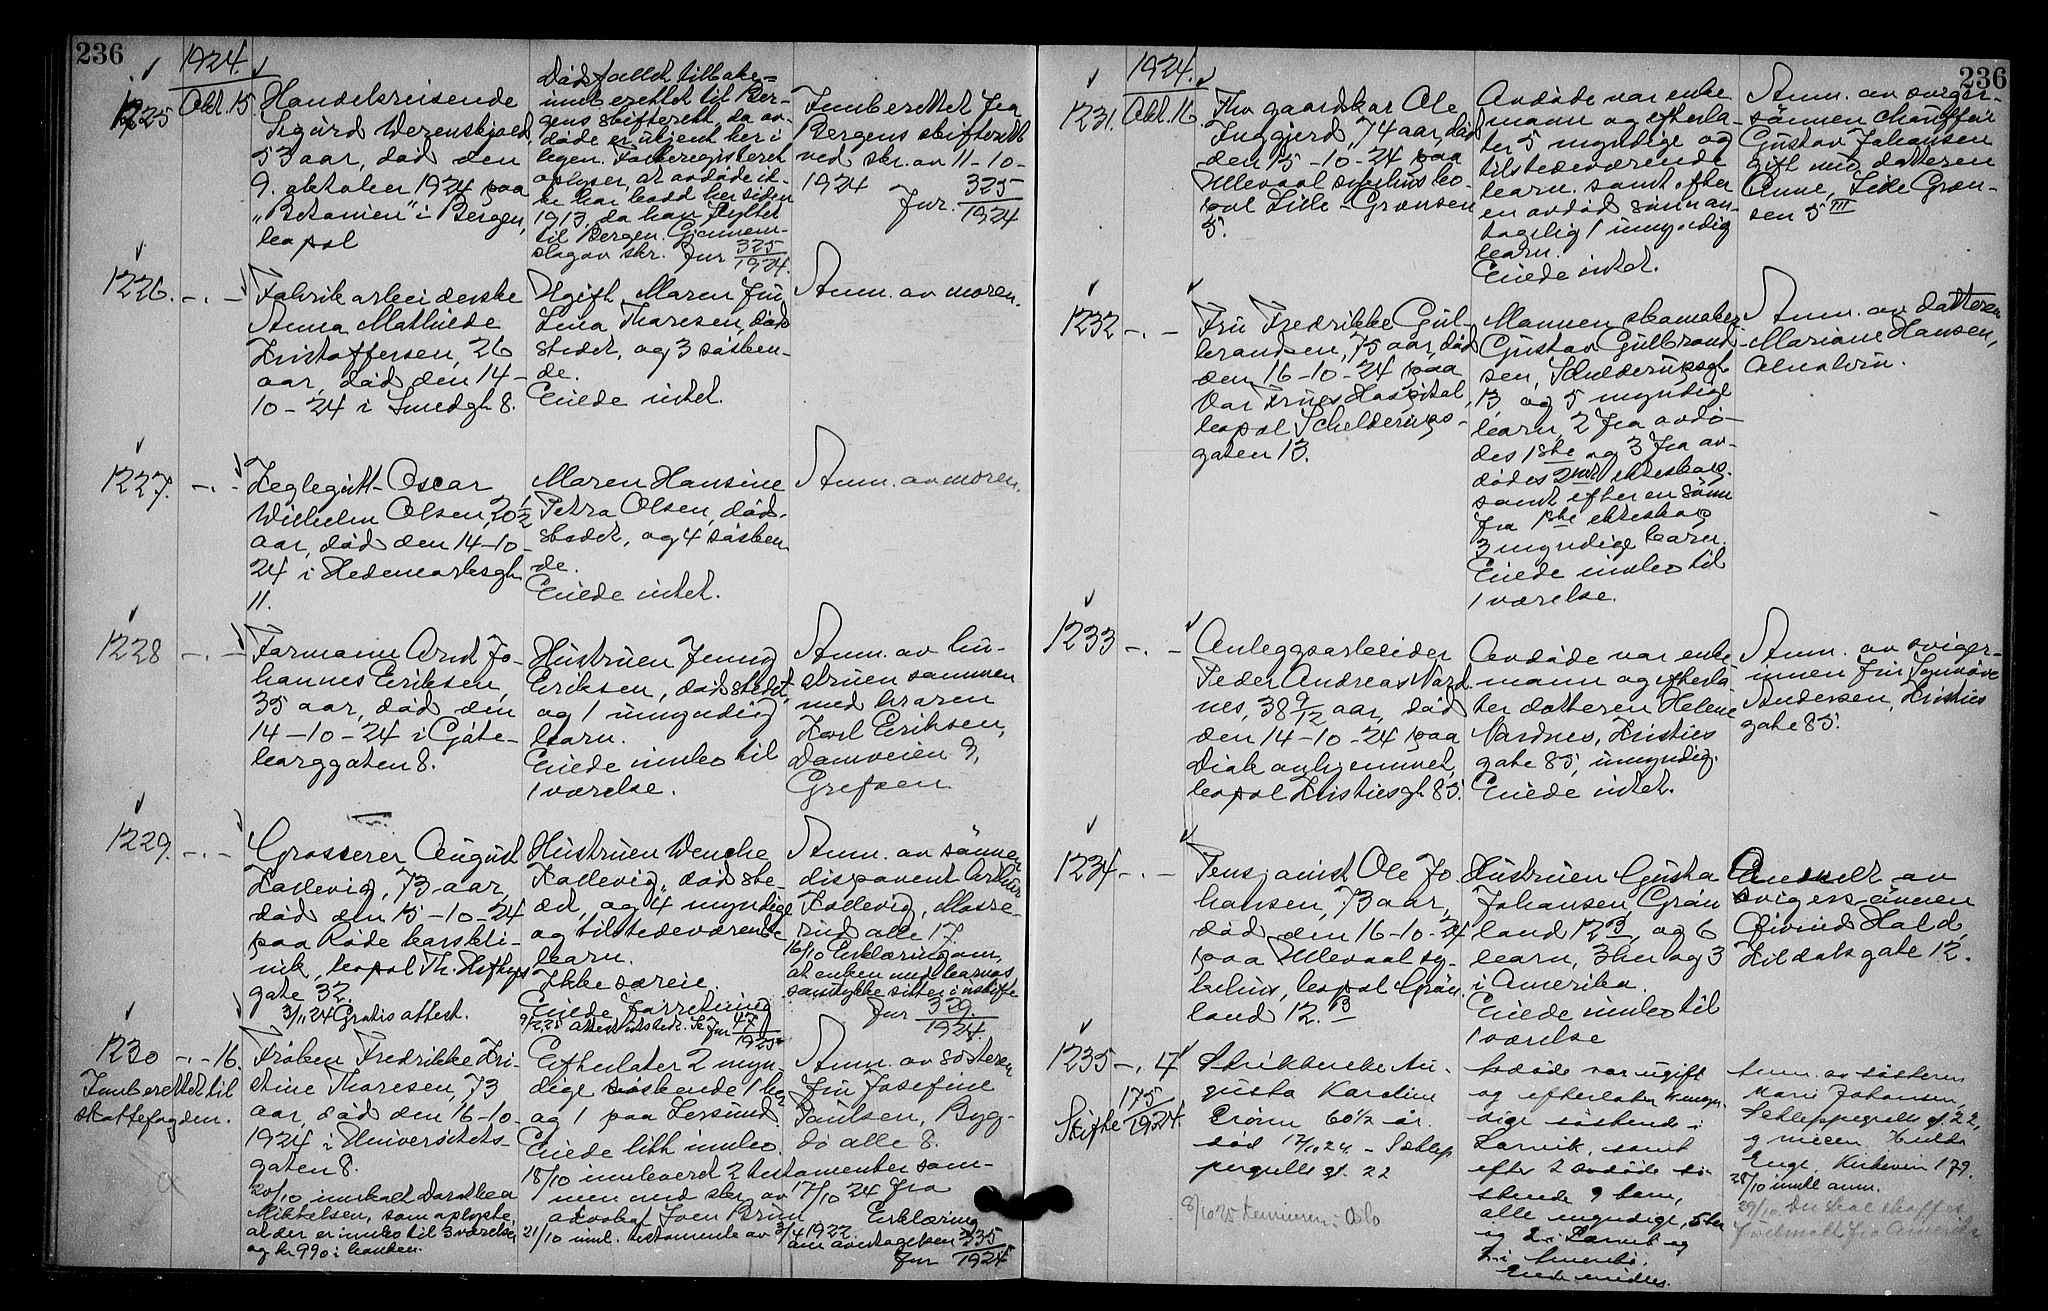 236
1924.
1225
Okt. 15.
Handelsreisende
Sigurd Werenskjold,
53 aar, død den
9. oktober 1924 paa
„Betanien" i Bergen,
bopæl
Dødsfallet tilbake-
innberettet til Ber-
gens skifterett, da av-
døde er ukjent her i
byen. Folkeregisteret
oplyser, at avdøde ik-
ke har bodd her siden
1913, da han flyttet
til Bergen. Gjennem-
slag av skr. Jnr 325/1924.
Innberettet fra
Bergens skifterett
ved skr. av 11-10-
1924
Jnr. 325/1924
1226. -.-
Fabrikarbeiderske
Anna Mathilde
Kristoffersen, 26
aar, død den 14-
10-24 i Smedgt. 8.
Ugift. Moren fru
Lina Thoresen, døds-
stedet, og 3 søsken-
de.
Eiede intet.
Anm. av moren.
1227. -.-
Teglegutt Oscar
Wilhelm Olsen, 20 1/2
aar, død den 14-10-
24 i Hedemarksgt.
11.
Moren Hansine
Petra Olsen, død-
stedet, og 4 søsken-
de.
Eiede intet.
Anm. av moren.
1228 -.-
Formann Arnt Jo-
hannes Eriksen,
35 aar, død den
14-10-24 i Gøte-
borggaten 8.
Hustruen Jenny
Eriksen, dødsstedet,
og 1 umyndig
barn.
Eiede innbo til
1 værelse.
Anm. av hu-
struen sammen
med broren
Karl Eriksen,
Damveien 9,
Grefsen
1229. -.-
Grosserer August
Kallevig, 73 aar,
død den 15-10-24
paa Røde kors kli-
nik, bopæl Th. Heftyes
gate 32.
3/11 24 Gratis attest.
Hustruen Wenche
Kallevig, dødsste-
det, og 4 myndige
og tilstedeværende
barn.
Ikke særeie.
Eiede forretning
9/2 25 attest utstedt. Se Jnr 47/1925
Anm. av sønnen
disponent Arthur
Kallevig, Monse-
rud alle 17.
16/10 Erklæring om,
at enken med barnas
samtykke sitter i uskifte
Jnr 329/1924.
1230 -.- 16.
Innberettet til
skattefogden.
Frøken Fredrikke Kri-
stine Thoresen, 73
aar, død den 16-10-
1924 i Universitets-
gaten 8.
20/10 innkalt Dorothea
Mikkelsen, som oplyste,
at der er innbo til 3 værelser
og kr 990 i banken.
Efterlater 2 myn-
dige søskende 1 her
og 1 paa Lersund
Eiede litt innbo.
18/10 innlevert 2 testamenter sam-
men med skr. av 17/10 24 fra
advokat Joen Brun
21/10 innl. testamente av 3/4 1922.
Anm. av søsteren
fru Josefine
Paulsen, Byg-
dø alle 8.
Erklæring
om overtagelsen
Jnr 335/1924
236
1924.
1231.
Okt. 16.
Fhv gaardskar Ole
Inggjerd, 74 aar, død
den 15-10-24 paa
Ullevaal sykehus bo-
pæl Lille Grænsen
5.
Avdøde var enke
mann og efterla-
ter 5 myndige og
tilstedeværende
barn. samt efter
en avdød sønn an-
tagelig 1 umyndig
barn.
Eiede intet.
Anm. av sviger-
sønnen chauffør
Gustav Johansen
gift med datteren
Anne, Lille Græn-
sen 5 III
1232 -.-
Fru Fredrikke Gul-
brandsen, 75 aar, død
den 16-10-24 paa
Vor Frues Hospital,
bopæl Schelderups-
gaten 13.
Mannen skomaker
Gustav Gulbrand-
sen, Schelderupsgt.
13 og 5 myndige
barn, 2 fra avdø-
des 1ste og 3 fra av-
dødes 2net ekteskap.
samt efter en sønn
fra 1ste ekteskap
3 myndige barn.
Eiede innbo til
1 værelse.
Anm. av datteren
Mariane Hansen,
Alnabru.
1233 -.-
Anleggsarbeider
Peder Andreas Nord-
nes, 38 9/12 aar, død
den 14-10-24 paa
Diakonhjemmet,
bopæl Kristiesgt 85.
Avdøde var enke
mann og efterla-
ter datteren Helene
Nordnes, Kristies
gate 85, umyndig.
Eiede intet.
Anm. av sviger-
innen fru Synnøve
Andersen, Kristies
gate 85.
1234 -.-
Pensjonist Ole Jo
hansen, 73 aar,
død den 16-10-24
paa Ullevaal sy-
kehus, bopæl Grøn-
land 12. B
Hustruen Gusta
Johansen Grøn
land 12 B, og 6
barn, 3 her og 3
i Amerika.
Eiede innbo til
1 værelse
Anmeldt av
svigersønnen
Øivind Hald,
Kildals gate 12.
1235 -. 17
Skifte 175/1924.
Strikkerske Au-
gusta Karoline
Grønn 60 1/2 år.
død 17/10 24 - Schlep
pegrells gt. 22
8/10 25 Oslo
Avdøde var ugift
og efterlater
dige søskende i
Larvik, samt
efter 2 avdøde sø-
skende 9 barn,
alle myndige, 5 her
og 2 i Larvik og
2 i Amerika.
Anm. av søsteren
Marie Johansen,
Schleppegrells gt. 22,
og niecen Hulda
Enge, Kirkeveien 179.
28/10 innk anm.
29/10 Der skal skaffes
fuldmakt fra Amerika